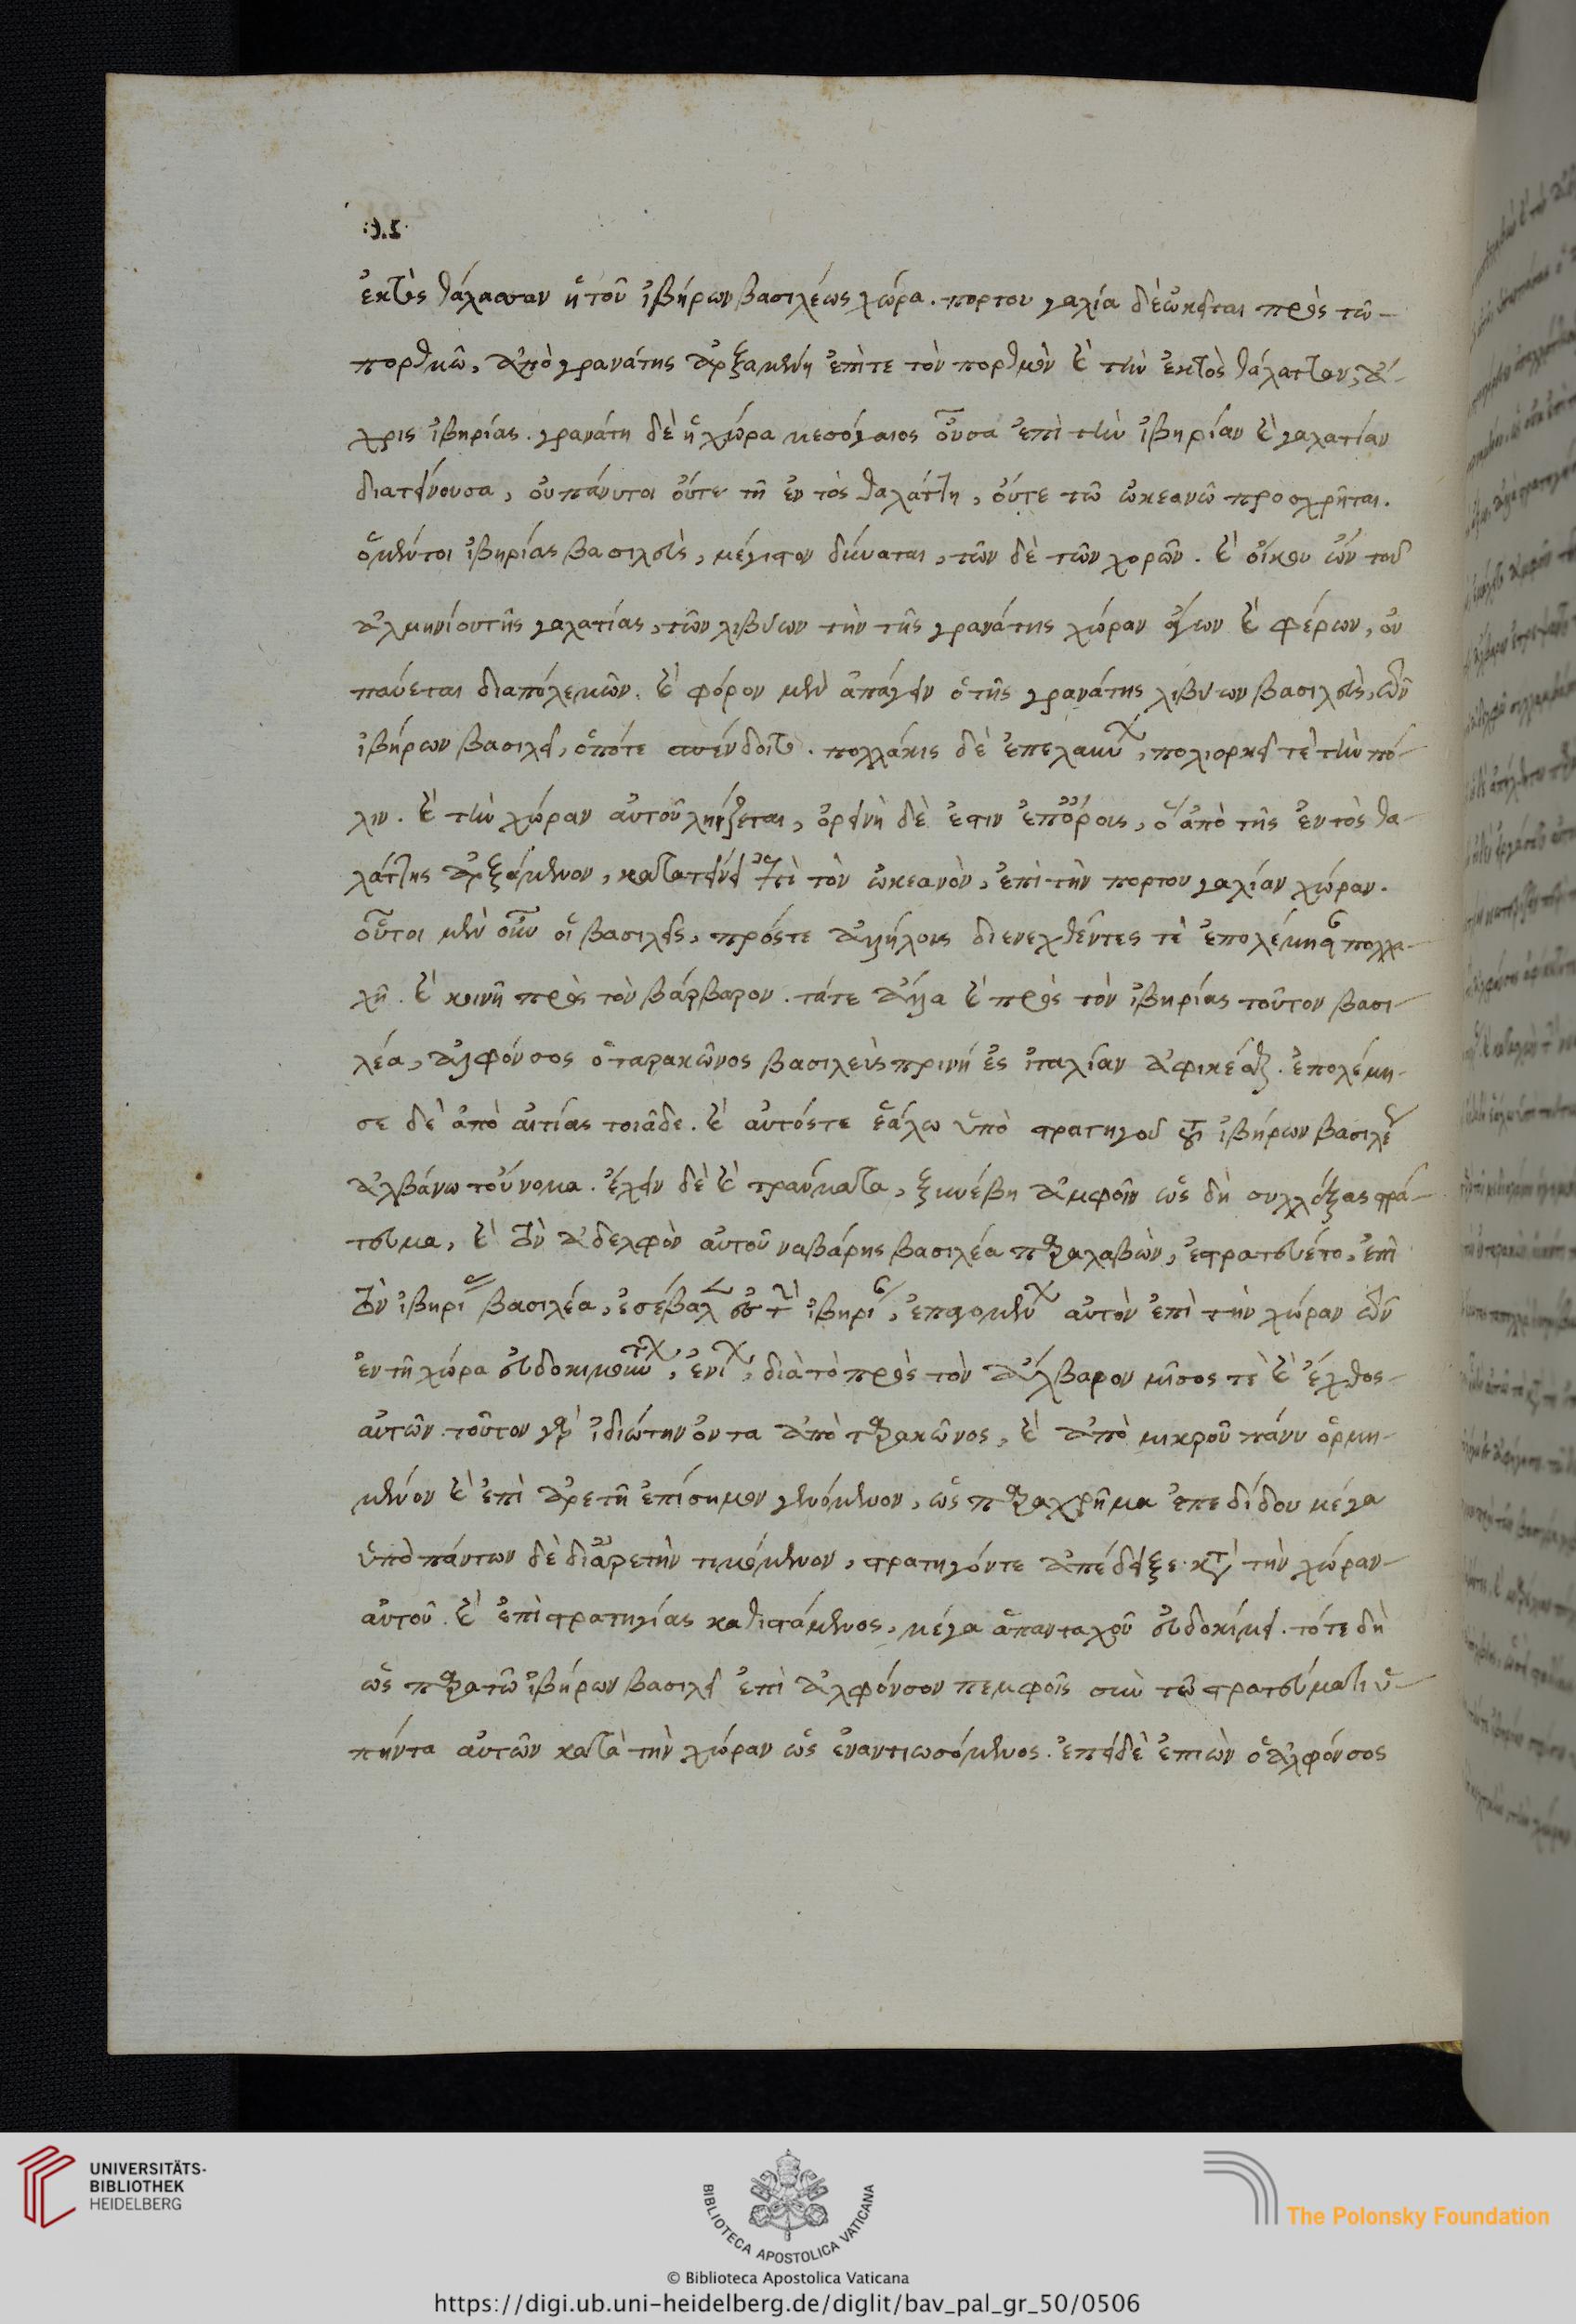 ἐκτὸς θάλασσαν ἡ τοῦ ἰβήρων βασιλέως χώρα. πορτουγαλία δὲ ὤκεισται πρὸς τῶ
πορθμῶ, ἀπὸ γρανάτης ἀρξαμένη ἐπί τε τὸν πορθμὸν καὶ τὴν ἐκτὸς θάλατταν, ἄ-
χρις ἰβηρίας. γρανάτη δὲ ἡ χώρα μεσόγαιος οὖσα ἐπὶ τὴν ἰβηρίαν καὶ γαλατίαν
διατείνουσα, οὐ πάνυτοι οὔτε τῆ ἐντὸς θαλάττη, οὔτε τῶ ὠκεανῶ προσχρῆται.
ὁ μέντοι ἰβηρίας βασιλεὺς, μέγιστον δύναται, τῶν δὲ τῶν χορῶν. καὶ οἴκου ὢν τοῦ
ἀλμηνίου τῆς γαλατίας, τῶν λιβύων τὴν τῆς γρανάτης χώραν ἄγων καὶ φέρων, οὐ
παύεται διαπόλεμῶν. καὶ φόρον μὲν ἀπάγειν ὁ τῆς γρανάτης λιβύων βασιλεὺς, τῶν
ἰβήρων βασιλεῖ, ὁπότε σπένδοιτο. πολλάκις δὲ ἐπελαυν, πολιορκεῖ τὲ τὴν πό-
λιν. καὶ τὴν χώραν αὐτοῦ ληΐζεται, ὀρεινὴ δὲ ἐστιν ἐπ' ὄροις, ὃ ἀπὸ τῆς ἐντὸς θα-
λάττης ἀρξάμενον, κατατείνει ἐπὶ τὸν ὠκεανὸν, ἐπὶ τὴν πορτουγαλίαν χώραν.
οὗτοι μὲν οὖν οἱ βασιλεῖς, πρός τε ἀλλήλους διενεχθέντες τὲ ἐπολέμησαν πολλα-
χῆ. καὶ κοινῆ πρὸς τὸν βάρβαρον. τά τε ἄλλα καὶ πρὸς τὸν ἰβηρίας τοῦτον βασι-
λέα, ἀλφόνσος ὁ ταρακῶνος βασιλεὺς πρινὴ ἐς ἰταλίαν ἀφικέσθαι. ἐπολέμη-
σε δὲ ἀπὸ αἰτίας τοιᾶδε. καὶ αὐτός τε ἑάλω ὑπὸ στρατηγοῦ τοῦ ἰβήρων βασιλέως
ἀλβάνω τοὔνομα. ἔχειν δὲ καὶ τραύματα, ξυνέβη ἀμφοῖν ὡς δὴ συλλέξας στρά-
τευμα, καὶ τὸν ἀδελφὸν αὐτοῦ ναβάρης βασιλέα παραλαβὼν, ἐστρατεύετο, ἐπὶ
τὸν ἰβηρίας βασιλέα, ἐσέβαλ ἐς τὴν ἰβηρίαν, ἐπαγομένων αὐτὸν ἐπὶ τὴν χώραν τῶν
ἐν τῆ χώρα εὐδοκιμουντων, ἐνίων, διὰ τὸ πρὸς τὸν ἄλβαρον μῖσος τὲ καὶ ἔχθος
αὐτῶν. τοῦτον γὰρ ἰδιώτην ὄντα ἀπὸ ταρακῶνος, καὶ ἀπὸ μικροῦ πάνυ ὁρμη-
μένον καὶ ἐπὶ ἀρετῆ ἐπίσημον γενόμενον, ὡς παραχρῆμα ἐπεδίδου μέγα
ὑπὸ πάντων δὲ δι' ἀρετὴν τιμώμενον, στρατηγόν τε ἀπέδειξε κατὰ τὴν χώραν
αὐτοῦ. καὶ ἐπὶ στρατηγίας καθιστάμενος, μέγα ἁπανταχοῦ εὐδοκίμει. τότε δὴ
ὡς παρὰ τῶ ἰβήρων βασιλεῖ ἐπὶ ἀλφόνσον πεμφοῖς σὺν τῶ στρατεύματι ὑ-
πήντα αὐτῶν κατὰ τὴν χώραν ὡς ἐναντιωσόμενος. ἐπεὶ δὲ ἐπιὼν ὁ ἀλφόνσος
UNIVERSITÄTS-
BIBLIOTHEK
HEIDELBERG
BIBLIOTECA APOSTOLICA VATICANA
The Polonsky Foundation
© Biblioteca Apostolica Vaticana
https://digi.ub.uni-heidelberg.de/diglit/bav_pal_gr_50/0506